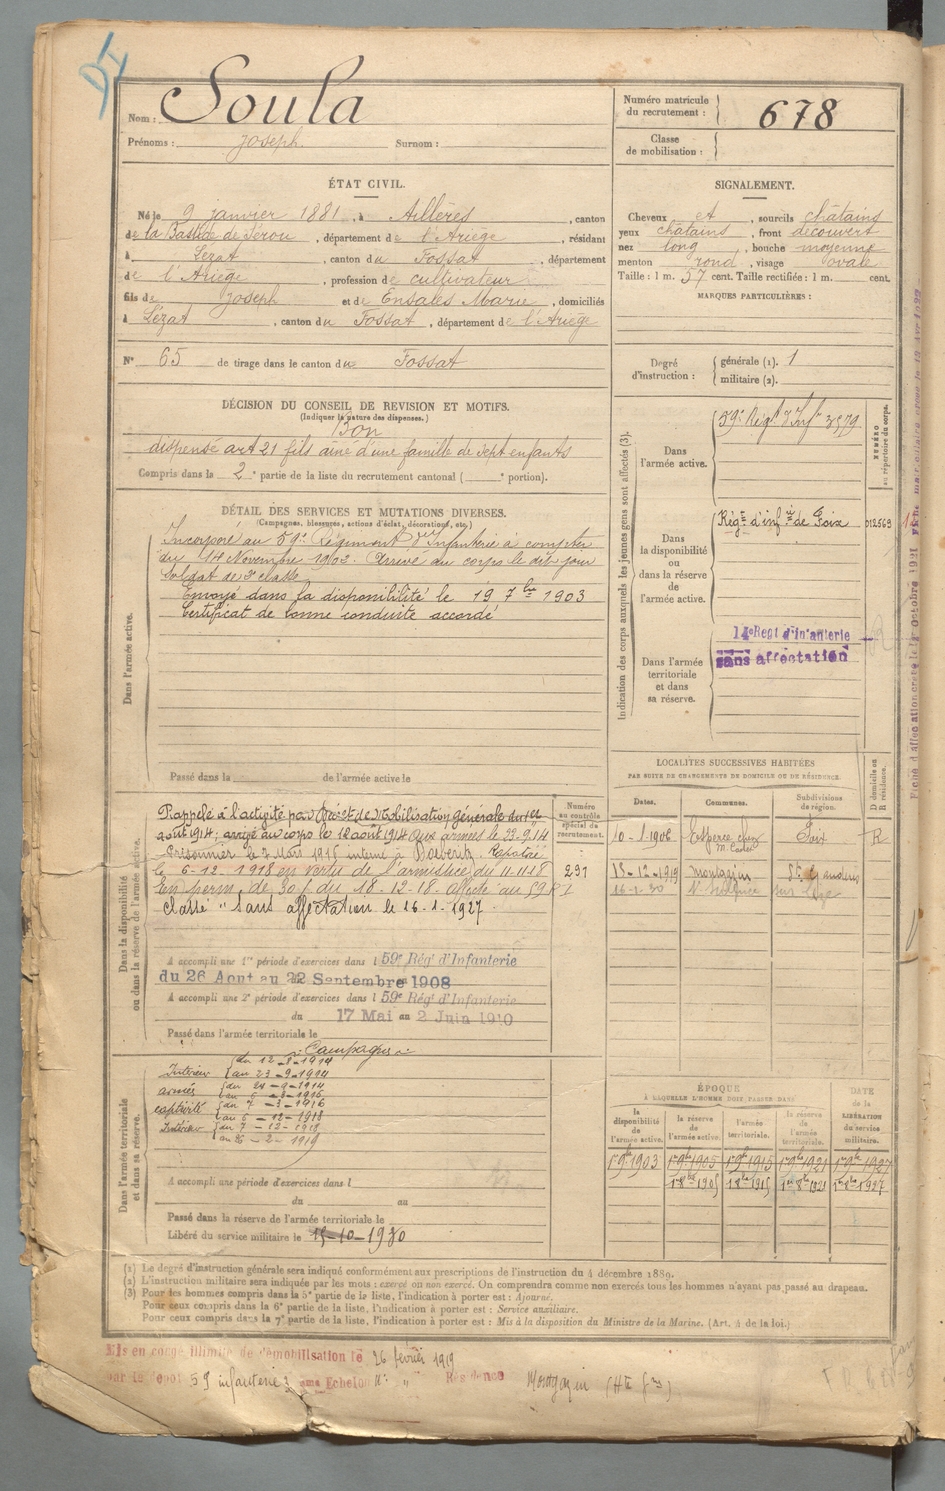 DI
Nom : Soula
Prénoms : Joseph Surnom :
Numéro matricule du recrutement : 678
Classe de mobilisation :
ÉTAT CIVIL.
Né le 9 janvier 1881, à Aillères, canton
de la Bastide de Sérou, département de l'Ariège, résidant
à Lézat, canton du Fossat, département
de l'Ariège, profession de cultivateur
fils de Joseph et de Ensales Marie, domiciliés
à Lézat, canton du Fossat, département de l'Ariège
N° 65 de tirage dans le canton du Fossat
SIGNALEMENT.
Cheveux et, sourcils châtains
yeux châtains, front découvert
nez long, bouche moyenne
menton rond, visage ovale
Taille : 1 m. 57 cent. Taille rectifiée : 1 m. cent.
MARQUES PARTICULIÈRES :
Degré d'instruction : générale (1). 1
militaire (2).
DÉCISION DU CONSEIL DE REVISION ET MOTIFS.
(Indiquer la nature des dispenses.)
Bon
dispensé art 21 fils aîné d'une famille de sept enfants
Compris dans la 2e partie de la liste du recrutement cantonal ( e portion).
DÉTAIL DES SERVICES ET MUTATIONS DIVERSES.
(Campagnes, blessures, actions d'éclat, décorations, etc.)
Dans l'armée active.
Incorporé au 59e Régiment d'Infanterie à compter
du 14 Novembre 1902. Arrivé au corps le dit jour
soldat de 2e classe
Envoyé dans la disponibilité le 19 7bre 1903
Certificat de bonne conduite accordé
Passé dans la de l'armée active le
Indication des corps auxquels les jeunes gens sont affectés (3).
Dans l'armée active.
59e Régt d'Infie 3579
NUMÉRO au répertoire du corps.
Dans la disponibilité ou dans la réserve de l'armée active.
Régt d'infie de Foix 012569
Dans l'armée territoriale et dans sa réserve.
14e Regt d'Infanterie
sans affectation
LOCALITÉS SUCCESSIVES HABITÉES
PAR SUITE DE CHANGEMENTS DE DOMICILE OU DE RÉSIDENCE.
Dates. Communes. Subdivisions de région. D domicile ou R résidence.
10-1-1906 Foix R
13-12-1919 Montgazin St Gaudens
16-1-30 sur Lèze
Dans la disponibilité ou dans la réserve de l'armée active.
Numéro au contrôle spécial du recrutement.
Rappelé à l'activité par Décret de Mobilisation générale du 1er
août 1914; arrivé au corps le 12 août 1914 Aux armées le 23-9-14
Prisonnier le 7 Mars 1916 interné à Doeberitz. Rapatrié
le 6-12-1918 en vertu de l'armistice du 11-11-18 291
En perm. de 30 j. du 18-12-18. affecté au 59 RI
Classé "sans affectation le 16-1-1927.
A accompli une 1re période d'exercices dans l 59e Rég' d'Infanterie
du 26 Aout au 22 Septembre 1908
A accompli une 2e période d'exercices dans l 59e Rég' d'Infanterie
du 17 Mai au 2 Juin 1910
Passé dans l'armée territoriale le
Dans l'armée territoriale et dans sa réserve.
Campagnes
Intérieur du 12-8-1914
au 23-9-1914
armées du 24-9-1914
captivité du 7-3-1916
au 6-12-1918
Intérieur du 7-12-1918
au 26-2-1919
A accompli une période d'exercices dans l
du au
Passé dans la réserve de l'armée territoriale le
Libéré du service militaire le 15-10-1930
ÉPOQUE
À LAQUELLE L'HOMME DOIT PASSER DANS
la disponibilité de l'armée active. la réserve de l'armée active. l'armée territoriale. la réserve de l'armée territoriale. DATE de la LIBÉRATION du service militaire.
1er 9bre 1903 1er 9bre 1905 1er 9bre 1915 1er 9bre 1921 1er 9bre 1927
1er 8bre 1905 1er 8bre 1915 1er 8bre 1921 1er 8bre 1927
(1) Le degré d'instruction générale sera indiqué conformément aux prescriptions de l'instruction du 4 décembre 1889.
(2) L'instruction militaire sera indiquée par les mots : exercé ou non exercé. On comprendra comme non exercés tous les hommes n'ayant pas passé au drapeau.
(3) Pour les hommes compris dans la 5e partie de la liste, l'indication à porter est : Ajourné.
Pour ceux compris dans la 6e partie de la liste, l'indication à porter est : Service auxiliaire.
Pour ceux compris dans la 7e partie de la liste, l'indication à porter est : Mis à la disposition du Ministre de la Marine. (Art. 4 de la loi.)
Mis en congé illimité de démobilisation le 26 février 1919
par le dépôt 59 infanterie 2 eme Echelon N° " Résidence Montgazin (Hte Gne)